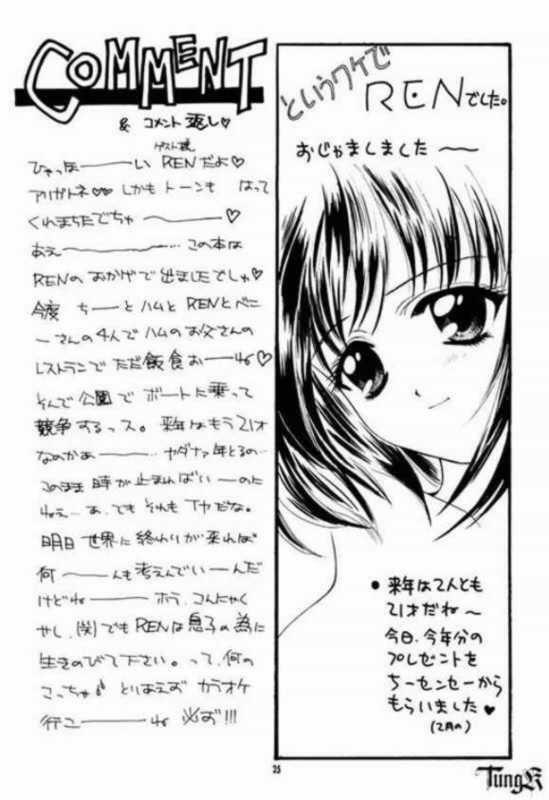 COMMENT
& コメント返し♡
ゲスト様
ひゃっほーーい RENだよ♡
アリガトネ♡♡ しかもトーンも はって
くれまちたでちゃ 〜♡
あぁ〜… この本は
RENのおかげで出ましたでしゅ♡
今度 ちーとハムとRENとべに
ーさんの4人でハムのお父さんの
レストランでただ飯食おーね♡
そんで公園でボートに乗って
競争するっス。来年はもう21才
なのかぁー ヤダナァ年とるの…
このまま時が止まればいーのに
ねぇ…あ、でもそれもイヤだな。
明日世界に終わりが来れば
何ーんも考えんでいーんだ
けどねー ホラ、コンにゃく
やし、(関)でもRENは息子の為に
生きのびて下さい。って、何の
こっちゃ とりあえずカラオケ
行こーね 必ず!!!
というワケで
RENでした。
おじゃましました〜
• 来年は2人とも
21才だね〜
今日、今年分の
プレゼントを
ちーセンセーから
もらいました♥
(2月の)
25
TungK